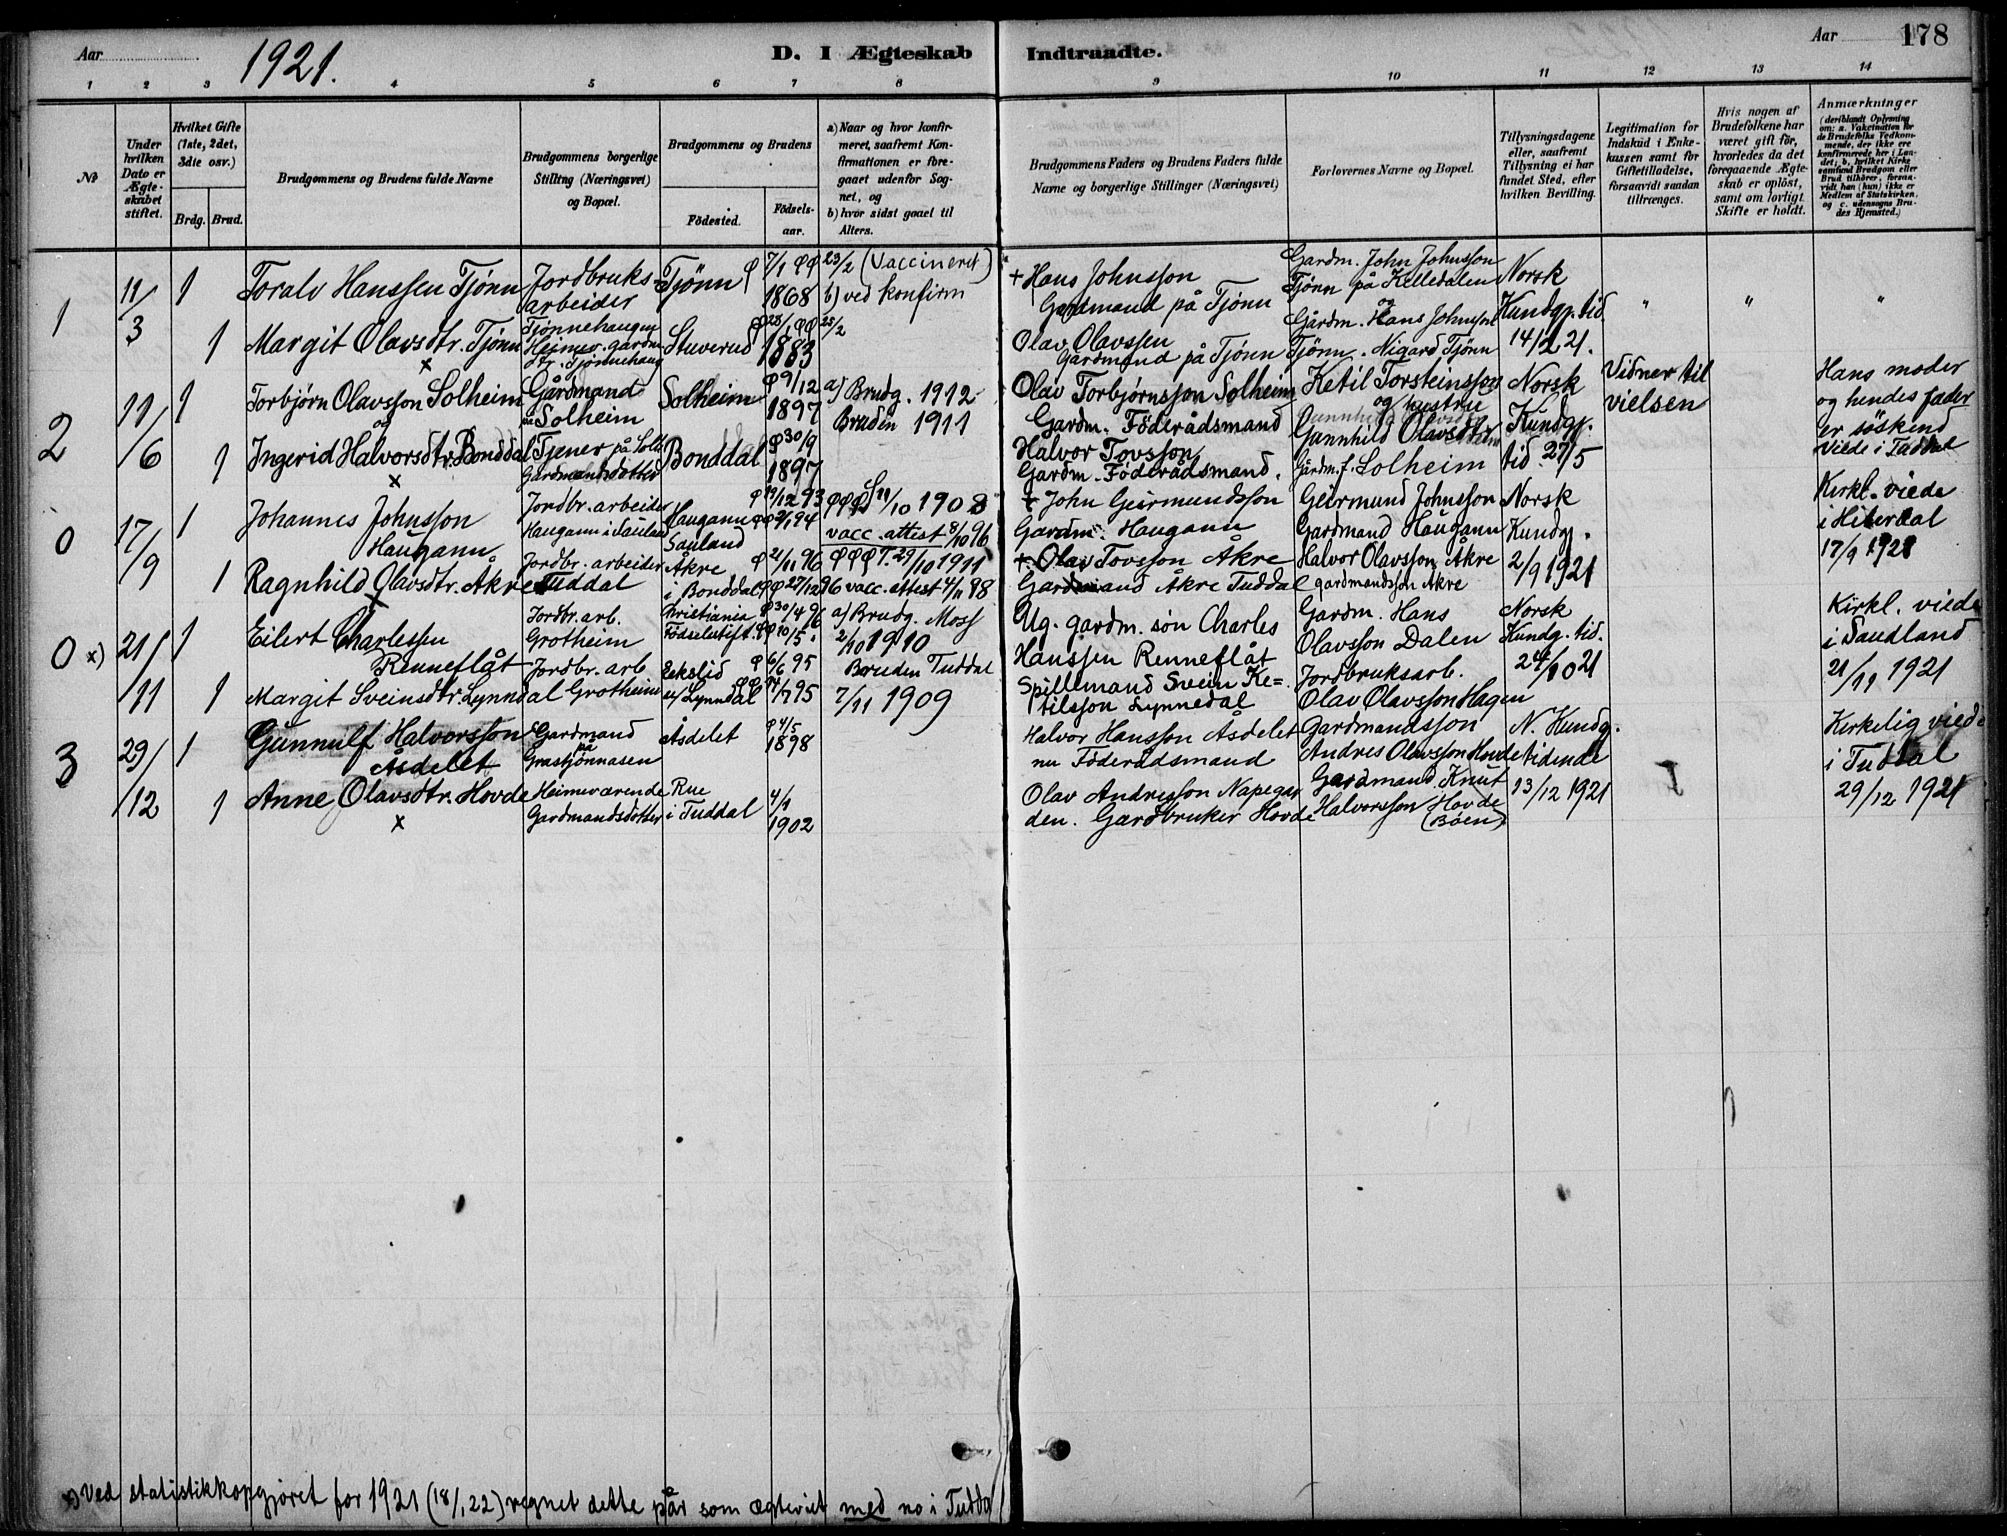 Aar
1921.
D. I Ægteskab
Indtraadte.
Aar
178
1 2 3 4 5 6 7 8 9 10 11 12 13 14
No
Under hvilken Dato er Ægteskabet stiftet.
Hvilket Gifte (1ste, 2det, 3die osv.)
Brdg. Brud.
Brudgommens og Brudens fulde Navne
Brudgommens borgerlige Stilling (Næringsvei) og Bopæl.
Brudgommens og Brudens
Födested.
Födsels-aar.
a) Naar og hvor konfirmeret, saafremt Konfirmationen er foregaaet udenfor Sognet, og
b) hvor sidst gaaet til Alters.
Brudgommens Faders og Brudens Faders fulde Navne og borgerlige Stillinger (Næringsvei)
Forlovernes Navne og Bopæl.
Tillysningsdagene eller, saafremt Tillysning ei har fundet Sted, efter hvilken Bevilling.
Legitimation for Indskud i Enkekassen samt for Giftetilladelse, forsaavidt saadan tiltrænges.
Hvis nogen af Brudefolkene har været gift för, hvorledes da det foregaaende Ægteskab er oplöst, samt om lovligt Skifte er holdt.
Anmærkninger
(deriblandt Oplysning om: a. Vakcination for de Brudefolks Vedkommende, der ikke ere konfirmerede her i Landet; b. hvilket Kirkesamfund Brudgom eller Brud tilhörer, forsaavidt han (hun) ikke er Medlem af Statskirken, og c. udensogns Brudes Hjemsted.)
1
11/3
1
Toralv Hanssen Tjönn
Jordbruks-
arbeider
Tjönn
7/1
1868
23/2 (Vaccineret)
b) ved konfirm
+ Hans Johnsson
Gardmand på Tjönn
Gardm. John Johnsson
Tjönn på Kelledalen
og
Norsk
Kundgj. tid
14/2 21.
" " "
1
Margit Olavsdtr. Tjönn
x
Tjönnehaugen
Heimev. gardm.
dtr. Tjönnehaug
Stuverud
28/1
1883
28/2
Olav Olavssen
Gardmand på Tjönn
Gårdm. Hans Johnson
Tjönn. Nigard Tjönn
2
11/6
1
Torbjörn Olavsson Solheim
og
Gårdmand
Solheim
Solheim
9/12
1897
a) Brudg. 1912
Bruden 1911
Olav Torbjörnsson Solheim
Gardm. Föderådsmand
Ketil Torsteinsson
og hustru
Norsk
Kundgj.
tid. 27/5
Vidner til
vielsen
Hans moder
og hendes fader
er söskend
Viede i Tuddal
1
Ingerid Halvorsdtr. Bonddal
x
Tjener på Solh.
Gardmandsdotter
Bonddal
30/9
1897
Halvor Tovsson
Gardm. Föderådsmand.
Gunnhild Olavsdtr
Gårdm.f. Solheim
0
17/9
1
Johannes Johnsson
Haugann
Jordbr. arbeider
Haugann i Sauland
Haugann
Sauland
19/12 93
2/1 94
11/10 1908
vacc. attest 8/10 96
+ John Geirmundsson
Gardm. Haugann
Geirmund Johnsson
Gardmand Haugann
Norsk
Kundgj.
2/9 1921
Kirkl. viede
i Hiterdal
17/9 1921
1
Ragnhild Olavsdtr. Åkre
x
Jordbr. arbeider
Tuddal
Åkre
i Bonddal
21/11 96
27/12 96
T. 29/10 1911
vacc. attest 4/11 98
+ Olav Tovsson Åkre
Gardmand Åkre Tuddal
Halvor Olavsson Åkre
gardmandssön Åkre
0 x)
21/11
1
Eilert Charlessen
Renneflåt
Jordbr. arb.
Grotheim
Kristiania
Födselsstift.
30/4 96
10/5 "
a) Brudg. Moss
2/10 1910
Ug. gardm. sön Charles
Hanssen Renneflåt
Gardm. Hans
Olavsson Dalen
Norsk
Kundg. tid.
24/10 21
Kirkl. viede
i Saudland
21/11 1921
1
Margit Sveinsdtr. Lynndal
Jordbr. arb
Grotheim
Eekslid
u/ Lynndal
6/6 95
14/7 95
Bruden Tuddal
7/11 1909
Spillemand Svein Ke=
tilsson Lynnedal
Jordbruksarb.
Olav Olavsson Hagen
3
29/12
1
Gunnulf Halvorsson
Åsdelet
Gardmand
på
Grastjönnåsen
Åsdelet
4/5
1898
Halvor Hansson Åsdelet
nu Föderådsmand
Gardmandssön
Andres Olavsson Hovde
N. Kundg.
tidende
13/12 1921
Kirkelig viede
i Tuddal
29/12 1921
1
Anne Olavsdtr. Hovde
x
Heimeværende
Gardmandsdotter
Rue
i Tuddal
4/1
1902
Olav Andresson Napegar
den. Gardbruker Hovde
Gardmand Knut
Halvorsson Hovde
(Böen)
x) Ved statistikkopgjöret for 1921 (18/1 22) regnet dette pår som ægteviet med no i Tudda